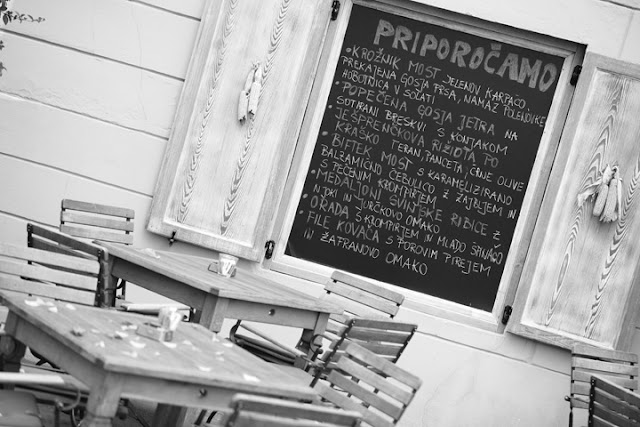 PRIPOROČAMO
• KROŽNIK MOST JELENOV KARPAČO,
PREKAJENA GOSJA PRSA, NAMAZ POLENOVKE
HOBOTNICA V SOLATI
• POPEČENA GOSJA JETRA NA
SOTIRANI BRESKVI S KONJAKOM
• JEŠPRENČKOVA RIŽOTA PO
KRAŠKO TERAN, PANCETA, ČRNE OLIVE
• BIFTEK MOST S KARAMELIZIRANO
BALZAMIČNO ČEBULICO Z ŽAJBLJEM IN
S PEČENIM KROMPIRJEM
• MEDALJONI SVINJSKE RIBICE Z
NJOKI IN JURČKOVO OMAKO
• ORADA S KROMPIRJEM IN MLADO ŠPINAČO
• FILE KOVAČA S POROVIM PIREJEM
IN ŽAFRANOVO OMAKO